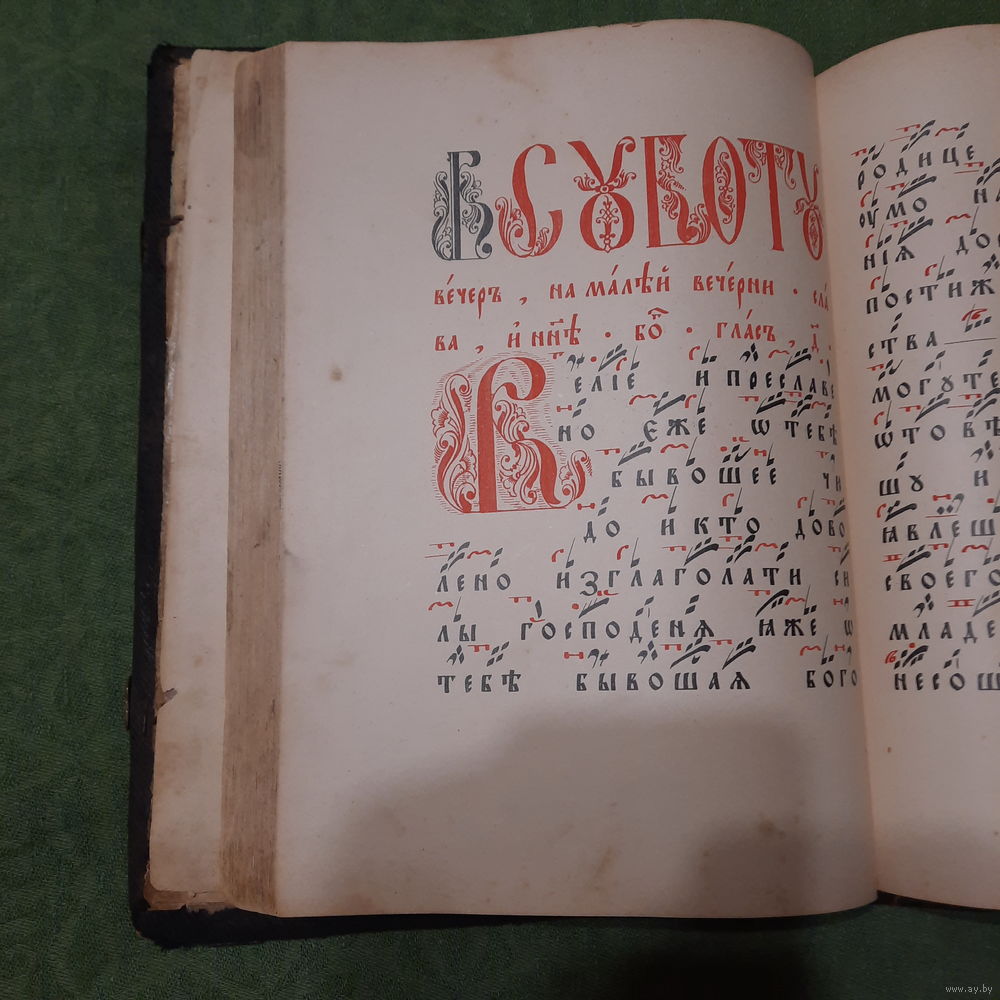 В СУБОТУ
ве́черъ , на ма́лѣй вече́рни · сла́
ва , и҆ нн҃ѣ · бо҃ · гла́съ , д҃ ·
Веліе и преславе
но єже ѿ тебѣ
бывошее чи
до и кто дово
лено изглаголати си
лы господенѧ ꙗже ѿ
тебѣ бывошаѧ бого
родице
ѹмо
нїѧ
постиж
ства
могꙋте
што вѣ
шꙋ и
ꙗвлеш
своего
младе
несош
www.ay.by